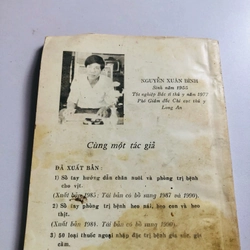 NGUYỄN XUÂN BÌNH
Sinh năm 1953
Tốt nghiệp Bác sĩ thú y năm 1977
Phó Giám đốc Chi cục thú y
Long An
Cùng một tác giả
ĐÃ XUẤT BẢN :
1) Sổ tay hướng dẫn chăn nuôi và phòng trị bệnh
cho vịt.
(Xuất bản 1985. Tái bản có bổ sung 1987 và 1990).
2) Sổ tay phòng trị bệnh heo nái, heo con và heo
thịt.
(Xuất bản 1988. Tái bản có bổ sung 1990).
3) 50 loại thuốc ngoại nhập đặc trị bệnh gia súc, gia
cầm.